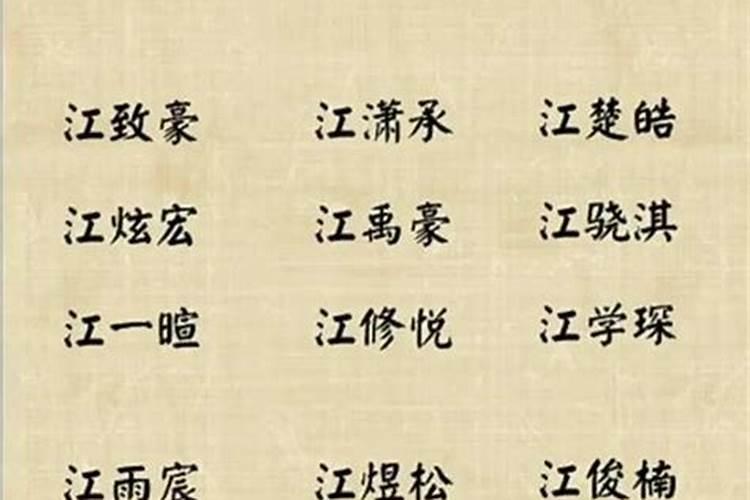 江致豪 江潇承 江楚皓
江炫宏 江禹豪 江骁淇
江一暄 江修悦 江学琛
江雨宸 江煜松 江俊楠